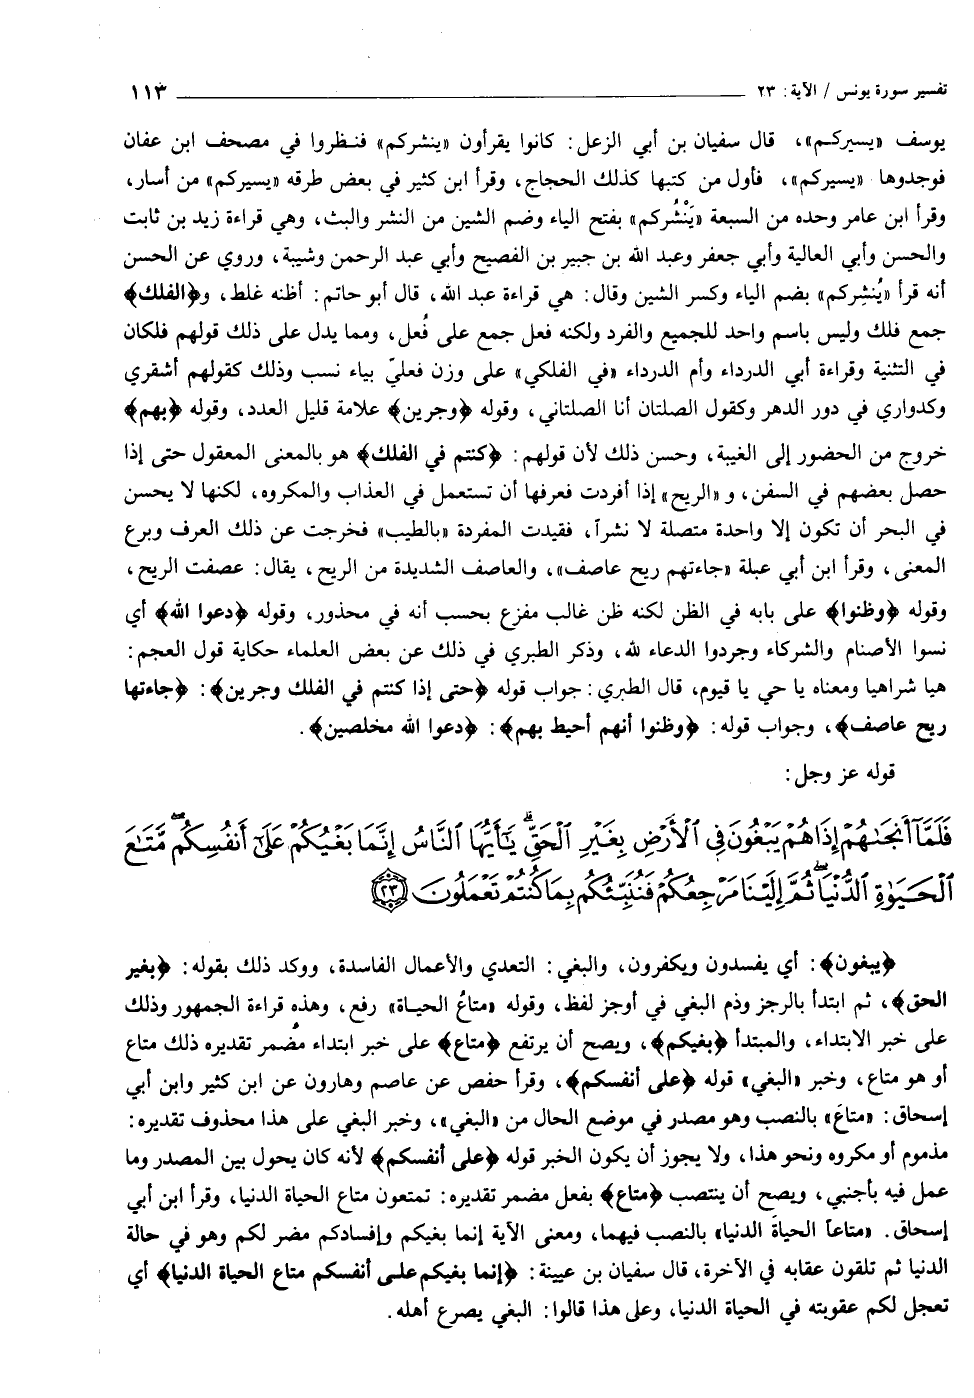 تفسير سورة يونس / الآية: ٢٣ ــــــــ ١١٣
يوسف «يسيركم»، قال سفيان بن أبي الزعل: كانوا يقرأون «ينشركم» فنظروا في مصحف ابن عفان
فوجدوها «يسيركم»، فأول من كتبها كذلك الحجاج، وقرأ ابن كثير في بعض طرقه «يسيركم» من أسار،
وقرأ ابن عامر وحده من السبعة «يَنْشُركم» بفتح الياء وضم الشين من النشر والبث، وهي قراءة زيد بن ثابت
والحسن وأبي العالية وأبي جعفر وعبد الله بن جبير بن الفصيح وأبي عبد الرحمن وشيبة، وروي عن الحسن
أنه قرأ «يُنشِركم» بضم الياء وكسر الشين وقال: هي قراءة عبد الله، قال أبو حاتم: أظنه غلط، و﴿الفلك﴾
جمع فلك وليس باسم واحد للجميع والفرد ولكنه فعل جمع على فُعل، ومما يدل على ذلك قولهم فلكان
في التثنية وقراءة أبي الدرداء وأم الدرداء «في الفلكي» على وزن فعليّ بياء نسب وذلك كقولهم أشقري
وكدواري في دور الدهر وكقول الصلتان أنا الصلتاني، وقوله ﴿وجرين﴾ علامة قليل العدد، وقوله ﴿بهم﴾
خروج من الحضور إلى الغيبة، وحسن ذلك لأن قولهم: ﴿كنتم في الفلك﴾ هو بالمعنى المعقول حتى إذا
حصل بعضهم في السفن، و «الريح» إذا أفردت فعرفها أن تستعمل في العذاب والمكروه، لكنها لا يحسن
في البحر أن تكون إلا واحدة متصلة لا نشراً، فقيدت المفردة «بالطيب» فخرجت عن ذلك العرف وبرع
المعنى، وقرأ ابن أبي عبلة «جاءتهم ريح عاصف»، والعاصف الشديدة من الريح، يقال: عصفت الريح،
وقوله ﴿وظنوا﴾ على بابه في الظن لكنه ظن غالب مفزع بحسب أنه في محذور، وقوله ﴿دعوا الله﴾ أي
نسوا الأصنام والشركاء وجردوا الدعاء لله، وذكر الطبري في ذلك عن بعض العلماء حكاية قول العجم:
هيا شراهيا ومعناه يا حي يا قيوم، قال الطبري: جواب قوله ﴿حتى إذا كنتم في الفلك وجرين﴾: ﴿جاءتها
ريح عاصف﴾، وجواب قوله: ﴿وظنوا أنهم أحيط بهم﴾: ﴿دعوا الله مخلصين﴾.
قوله عز وجل:
فَلَمَّآ أَنجَىٰهُمْ إِذَا هُمْ يَبْغُونَ فِى ٱلْأَرْضِ بِغَيْرِ ٱلْحَقِّ ۗ يَـٰٓأَيُّهَا ٱلنَّاسُ إِنَّمَا بَغْيُكُمْ عَلَىٰٓ أَنفُسِكُم ۖ مَّتَـٰعَ
ٱلْحَيَوٰةِ ٱلدُّنْيَا ۖ ثُمَّ إِلَيْنَا مَرْجِعُكُمْ فَنُنَبِّئُكُم بِمَا كُنتُمْ تَعْمَلُونَ ﴿٢٣﴾
﴿يبغون﴾: أي يفسدون ويكفرون، والبغي: التعدي والأعمال الفاسدة، ووكد ذلك بقوله: ﴿بغير
الحق﴾، ثم ابتدأ بالرجز وذم البغي في أوجز لفظ، وقوله «متاعُ الحياة» رفع، وهذه قراءة الجمهور وذلك
على خبر الابتداء، والمبتدأ ﴿بغيكم﴾، ويصح أن يرتفع ﴿متاع﴾ على خبر ابتداء مُضمر تقديره ذلك متاع
أو هو متاع، وخبر «البغي» قوله ﴿على أنفسكم﴾، وقرأ حفص عن عاصم وهارون عن ابن كثير وابن أبي
إسحاق: «متاعَ» بالنصب وهو مصدر في موضع الحال من «البغي»، وخبر البغي على هذا محذوف تقديره:
مذموم أو مكروه ونحو هذا، ولا يجوز أن يكون الخبر قوله ﴿على أنفسكم﴾ لأنه كان يحول بين المصدر وما
عمل فيه بأجنبي، ويصح أن ينتصب ﴿متاع﴾ بفعل مضمر تقديره: تمتعون متاع الحياة الدنيا، وقرأ ابن أبي
إسحاق. «متاعاً الحياةَ الدنيا» بالنصب فيهما، ومعنى الآية إنما بغيكم وإفسادكم مضر لكم وهو في حالة
الدنيا ثم تلقون عقابه في الآخرة، قال سفيان بن عيينة: ﴿إنما بغيكم على أنفسكم متاع الحياة الدنيا﴾ أي
تعجل لكم عقوبته في الحياة الدنيا، وعلى هذا قالوا: البغي يصرع أهله.